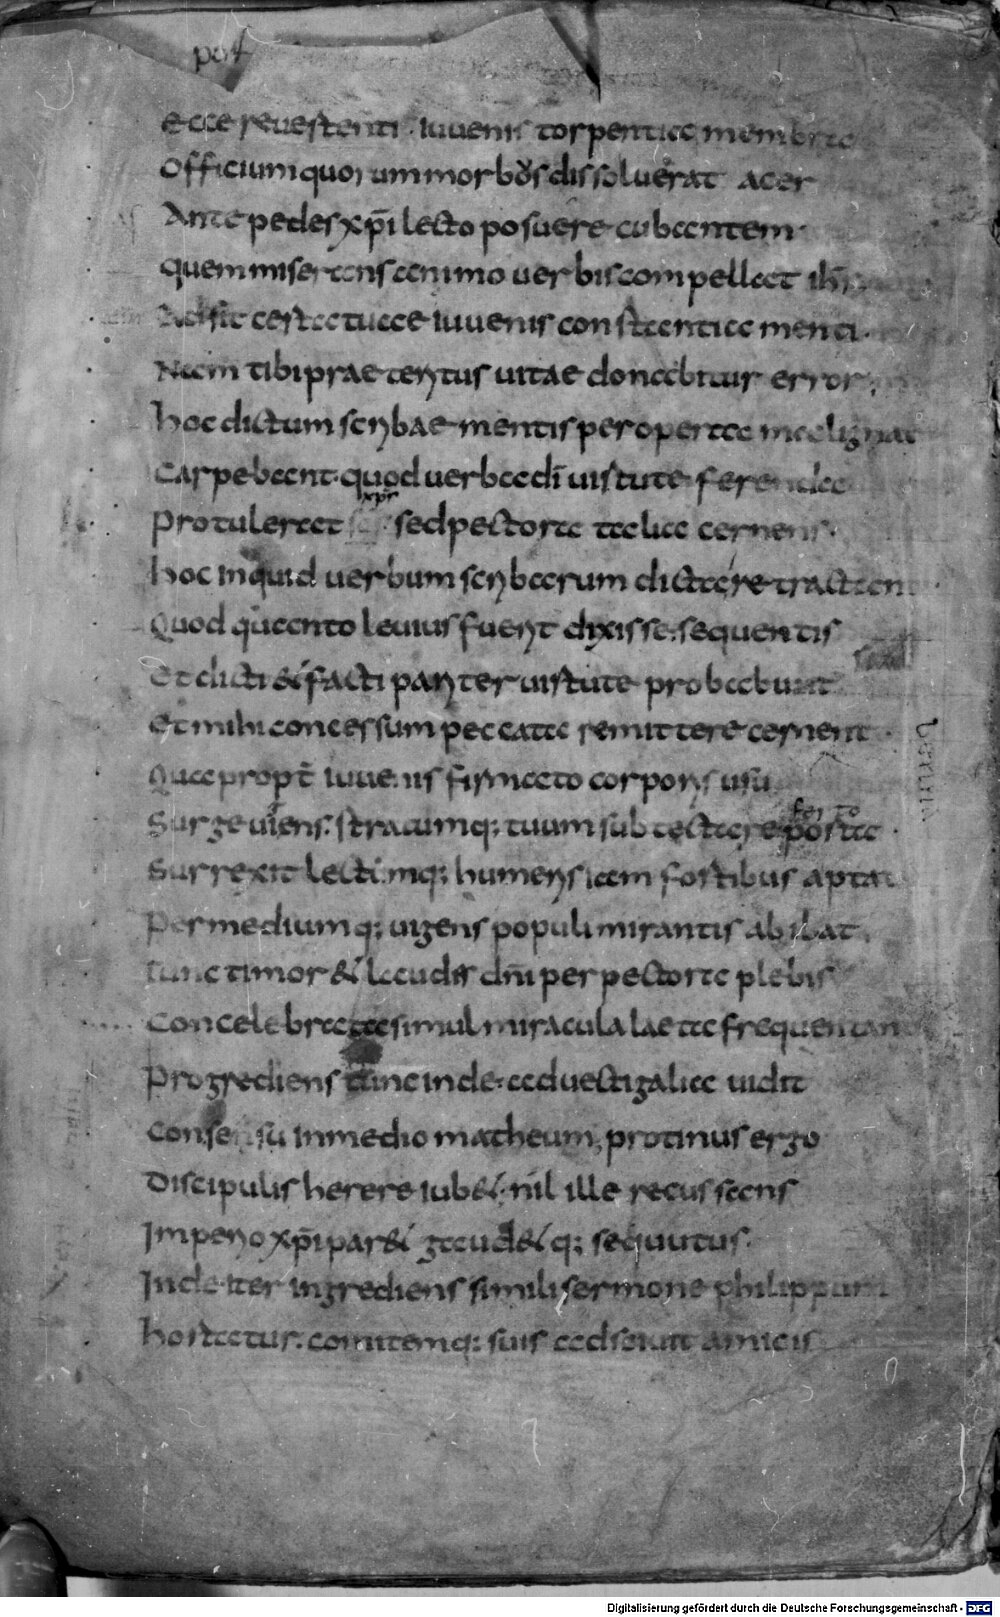 post
Ecce reuertenti iuuenis torpentia membra
Officium quorum morbos dissoluerat acer
Ante pedes xp̄i lecto posuere cubantem·
Quem miserans animo uerbis compellat ih̄s
Adsit certa tuae iuuenis constantia menti·
Nam tibi praeteritus uitae donabitur error;
Hoc dictum scribae mentis per operta maligna
Carpebant· quod uerba dī uirtute ferenda
xp̄s
Protulerat sed pectoris talia cernens·
Hoc inquid uerbum scribarum dicere tractant
Quod quanto leuius fuerit dixisse· sequentis
Et dicti & facti pariter uirtute probabunt
Et mihi concessum peccata remittere cernent·
Quae propt̄ iuuenis firmato corporis usu
ferto
Surge uigens: stratumq; tuum sub tecta reporta·
Surrexit lectumq; humeris iam fortibus aptat
Per mediumq; uigens populi mirantis abibat·
Tunc timor & laudis dn̄i per pectora plebis
Concelebrata simul miracula laeta frequentant
Progrediens tunc inde· ad uectigalia uidit
Consensu in medio matheum, protinus ergo
Discipulis herere iub&· nil ille recussans
Imperio xp̄i par& gaud&q; sequutus·
Inde iter ingrediens simili sermone philippum
Hortatur: comitemq; suis adsciuit amicis